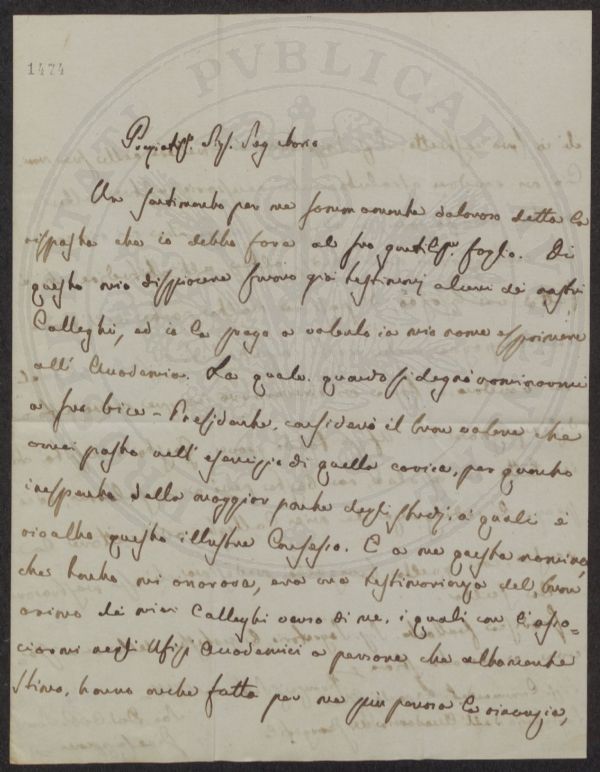 1474
Pregiatiss. Sig. Segretario
Un sentimento per me sommamente doloroso detta la
risposta che io debbo fare al suo gentiliss. foglio. Di
questo mio dispiacere furono già testimonj alcuni dei nostri
Colleghi, ed io la prego a volerlo in mio nome esprimere
all' Accademia. La quale quando si degnò nominarmi
a suo Vice-Presidente, considerò il buon volere che
avrei posto nell' esercizio di quella carica, per quanto
inesperto della maggior parte degli studj, ai quali è
rivolto questo illustre Consesso. E a me questa nomina,
che tanto mi onorava, era una testimonianza del buon
animo dei miei Colleghi verso di me, i quali con l'asso=
ciarmi negli Ufizj Accademici a persone che altamente
stimo, hanno anche fatta per me più penosa la rinunzia,